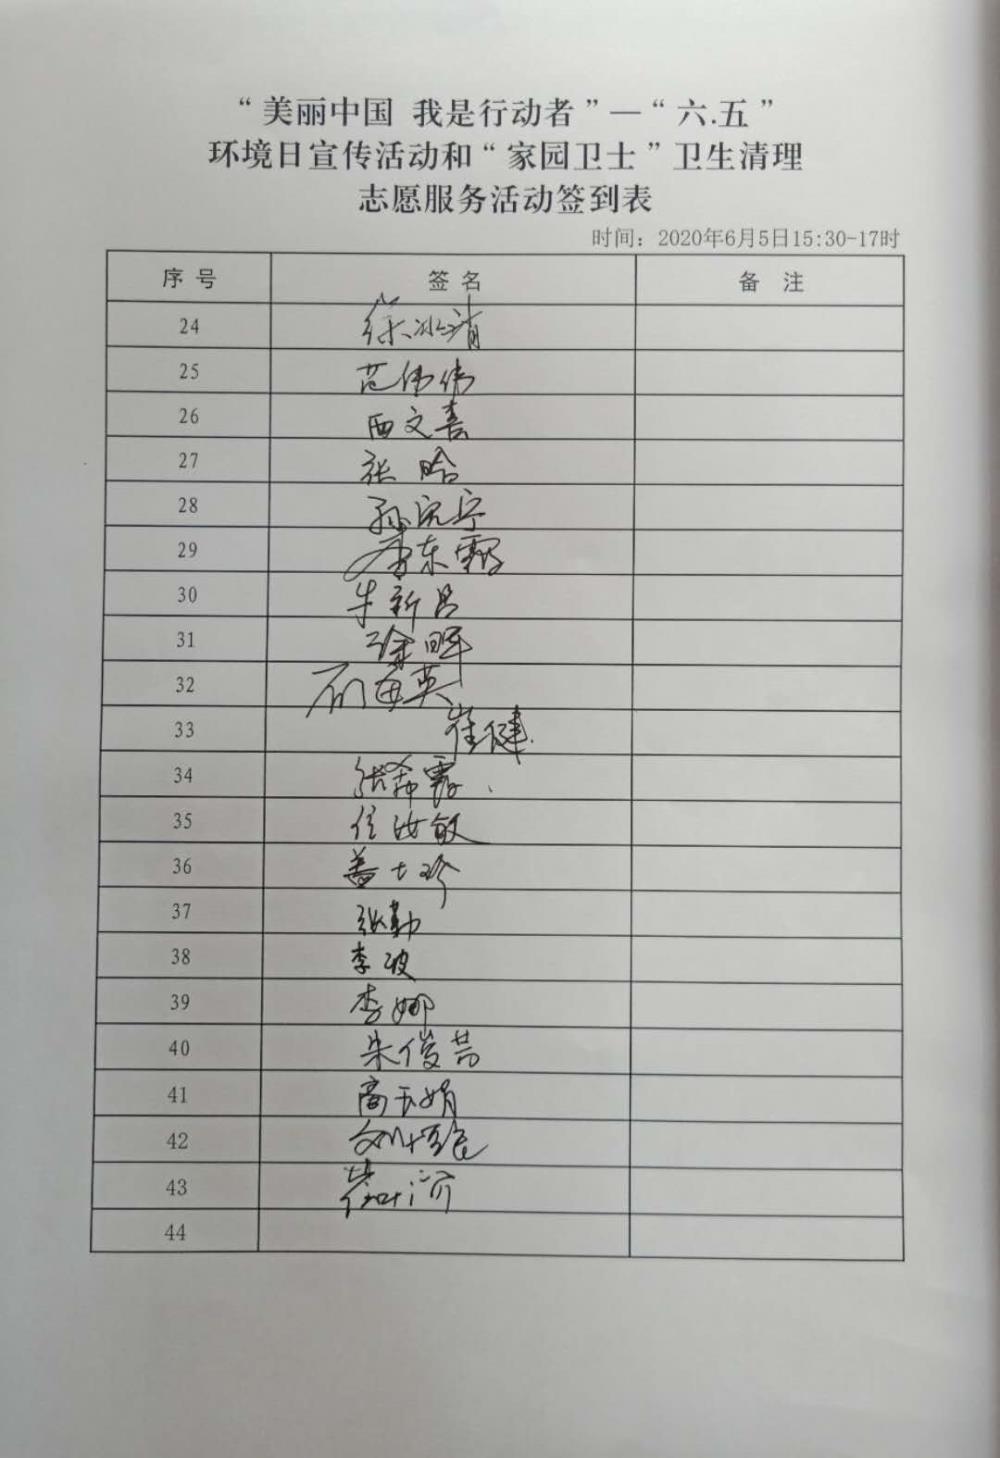 “美丽中国 我是行动者”—“六.五”
环境日宣传活动和“家园卫士”卫生清理
志愿服务活动签到表
时间：2020年6月5日15:30-17时
序号 签名 备注
24 徐冰清
25 范伟伟
26 西文喜
27 张晗
28
29 东霞
30 牛新吕
31 徐晖
32 石海英
33 崔健
34 张希霞
35 任汝敏
36
37 张勤
38 李波
39 李娜
40 朱俊芸
41 高玉娟
42
43
44